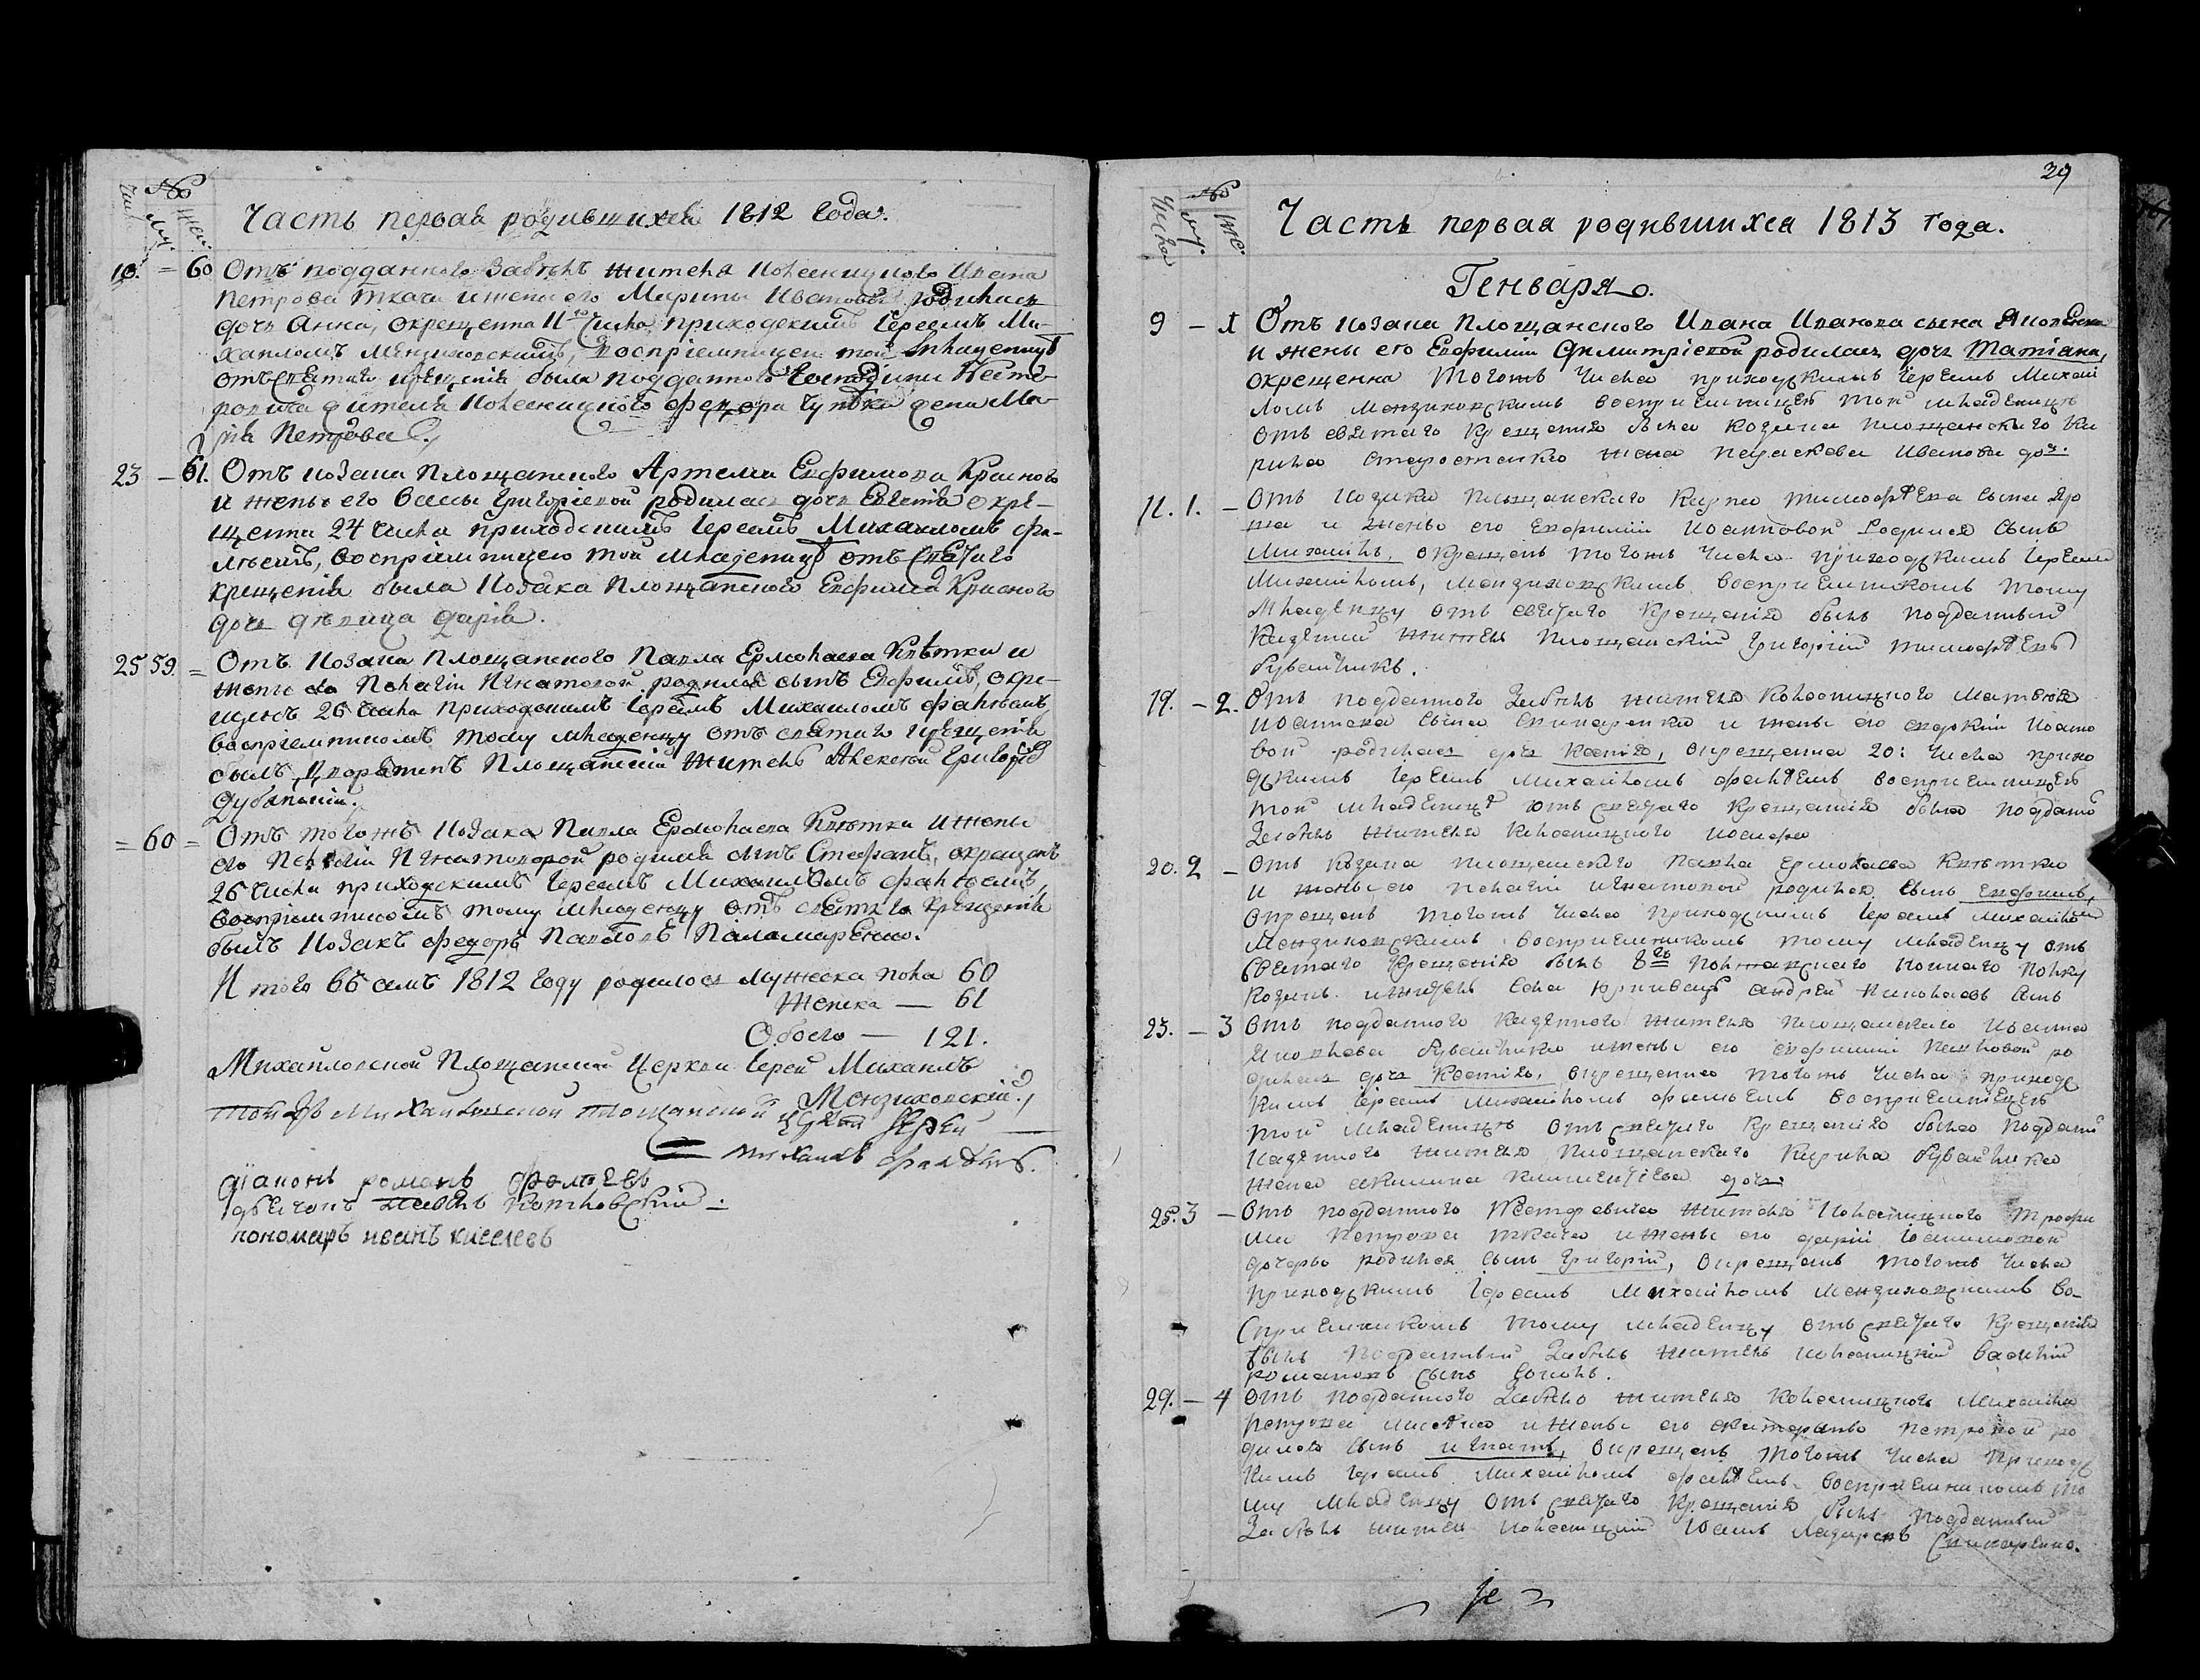 №
Часть первая родившихся 1812 года.
10. = 60 Отъ подданного Забѣлъ жителя Колесницкого Ивана
Петрова Ткача и жены его Марины Ивановой родилась
дочь Анна, окрещенна 11го числа приходскимъ Іереемъ Ми-
хаиломъ Мензиховскимъ, воспріемницею той младеницѣ
отъ святаго крещенія была подданного
жителя Колесницкого Федора жена Ма-
рія Петрова
23 - 61. Отъ козака Площанского Артема Евфимова Красного
и жены его Вассы Григоріевой родилась дочь Евгенія окре-
щенна 24 числа приходскимъ Іереемъ Михаиломъ Фа-
лѣемъ, воспріемницею той младеницѣ отъ святаго
крещенія была Козака Площанского Евфима Красного
дочь дѣвица Дарія.
25 59. = Отъ Козака Площанского Павла Ермолаева Квѣтки и
жены его Пелагіи Игнатовой родился сынъ Евфимъ, окре-
щенъ 26 числа приходскимъ Іереемъ Михаиломъ Фалѣемъ,
воспріемникомъ тому младенцу отъ святаго крещенія
былъ, дворянинъ Площанскій житель Алексѣй Григорѣевъ
= 60 = Отъ тогожъ Козака Павла Ермолаева Квѣтки и жены
его Пелагіи Игнатовой родился сынъ Стефанъ, окрещенъ
26 числа приходскимъ Іереемъ Михаиломъ Фалѣемъ,
воспріемникомъ тому младенцу отъ святаго крещенія
былъ Козакъ Федоръ Павловъ Паламаренко.
Итого въ семъ 1812 году родилось Мужеска пола 60
Женска — 61
Обоего — 121.
Михайловской Площанской Церкви Іерей Михаилъ
Мензиховскій.
Той же Михайловской площанской церкви Іерей
Михаилъ Фалѣевъ.
діаконъ романъ
дьячокъ
пономарь иванъ киселевъ
29
Числа № му: же
Часть первая родившихся 1813 года.
Генваря.
9 - 1 Отъ козака Площанского Ивана Иванова сына Яковенка
и жены его Евфиміи Димитріевой родилась дочь Татіана,
окрещенна тогожъ числа приходскимъ Іереемъ Михаи
ломъ Мензиховскимъ воспріемницею той младеницѣ
отъ святаго крещенія была козака площанского Ки
рила жена Параскева Иванова дочь.
11. 1. - Отъ козака площанского Карпа Тимофѣева сына
и жены его Евфиміи Иоанновой родился сынъ
Михаилъ, окрещенъ тогожъ числа приходскимъ Іереемъ
Михаиломъ, Мензиховскимъ воспріемникомъ тому
младенцу отъ святаго крещенія былъ подданный
казенный житель площанскій Григорій Тимофѣевъ
19. - 2. Отъ подданного Забѣлъ жителя Колесницкого Матвѣя
Иоаннова сына и жены его Иоанно
вой родилась дочь Ксенія, окрещенна 20: числа прихо
дскимъ Іереемъ Михаиломъ Фалѣемъ воспріемницею
той младеницѣ отъ святаго крещенія была подданного
Забѣлъ жителя Колесницкого Иосифа
20. 2 - Отъ козака площанского Павла Ермолаева Квѣтки
и жены его Пелагіи Игнатовой родился сынъ Евфимъ,
окрещенъ тогожъ числа приходскимъ Іереемъ Михаиломъ
Мензиховскимъ воспріемникомъ тому младенцу отъ
святаго крещенія былъ Полтавскаго коннаго полку
козакъ Андрей Николаевъ сынъ
23. - 3 Отъ подданного казенного жителя площанского Иоанна
Яковлева и жены его Евфиміи Павловой ро
дилась дочь Ксенія, окрещенна тогожъ числа приходс
кимъ Іереемъ Михаиломъ Фалѣемъ воспріемницею
той младеницѣ отъ святаго крещенія была подданного
казенного жителя площанского Кирила
жена Акилина дочь
25. 3 - Отъ подданного жителя Колесницкого Трофи
ма Петрова Ткача и жены его Даріи
дочерью родился сынъ Григорій, окрещенъ тогожъ числа
приходскимъ Іереемъ Михаиломъ Мензиховскимъ во-
спріемникомъ тому младенцу отъ святаго крещенія
былъ подданный Забѣлъ житель колесницкій Василій
романовъ сынъ
29. - 4 Отъ подданного Забѣлъ жителя Колесницкого Михаила
Петрова и жены его Екатерины Петровой ро
дился сынъ Игнатъ, окрещенъ тогожъ числа приходс
кимъ Іереемъ Михаиломъ Фалѣемъ воспріемникомъ то
му младенцу отъ святаго крещенія былъ подданный
Забѣлъ житель колесницкій Иоаннъ Лазаревъ